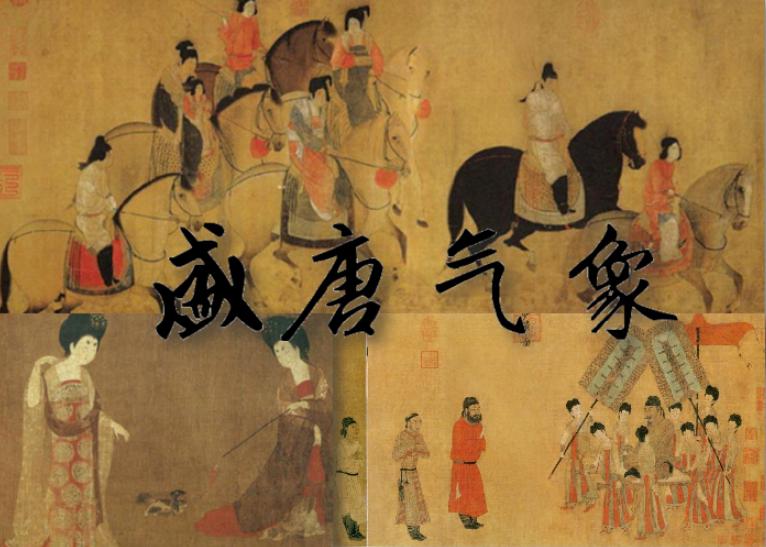 盛唐气象